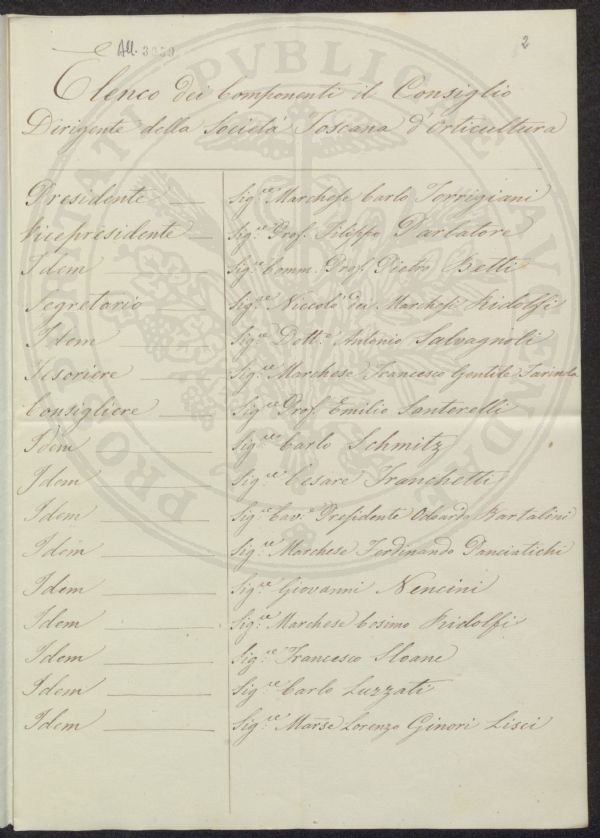 All. 3039
2
Elenco dei Componenti il Consiglio
Dirigente della Società Toscana d'Orticultura
Presidente Sig.re Marchese Carlo Torrigiani
Vicepresidente Sig.re Prof. Filippo Parlatore
Idem Sig.re Comm. Prof. Pietro Betti
Segretario Sig.re Niccolò dei Marchesi Ridolfi
Idem Sig.re Dott.e Antonio Salvagnoli
Tesoriere Sig.re Marchese Francesco Gentile Farinola
Consigliere Sig.re Prof. Emilio Santerelli
Idem Sig.re Carlo Schmitz
Idem Sig.re Cesare Franchetti
Idem Sig.re Cav.e Presidente Odoardo Bartalini
Idem Sig.re Marchese Ferdinando Panciatichi
Idem Sig.re Giovanni Nencini
Idem Sig.re Marchese Cosimo Ridolfi
Idem Sig.re Francesco Sloane
Idem Sig.re Carlo Luzzati
Idem Sig.re Marse Lorenzo Ginori Lisci
PRO PRIVATI PVBLICAE AVGENDAE